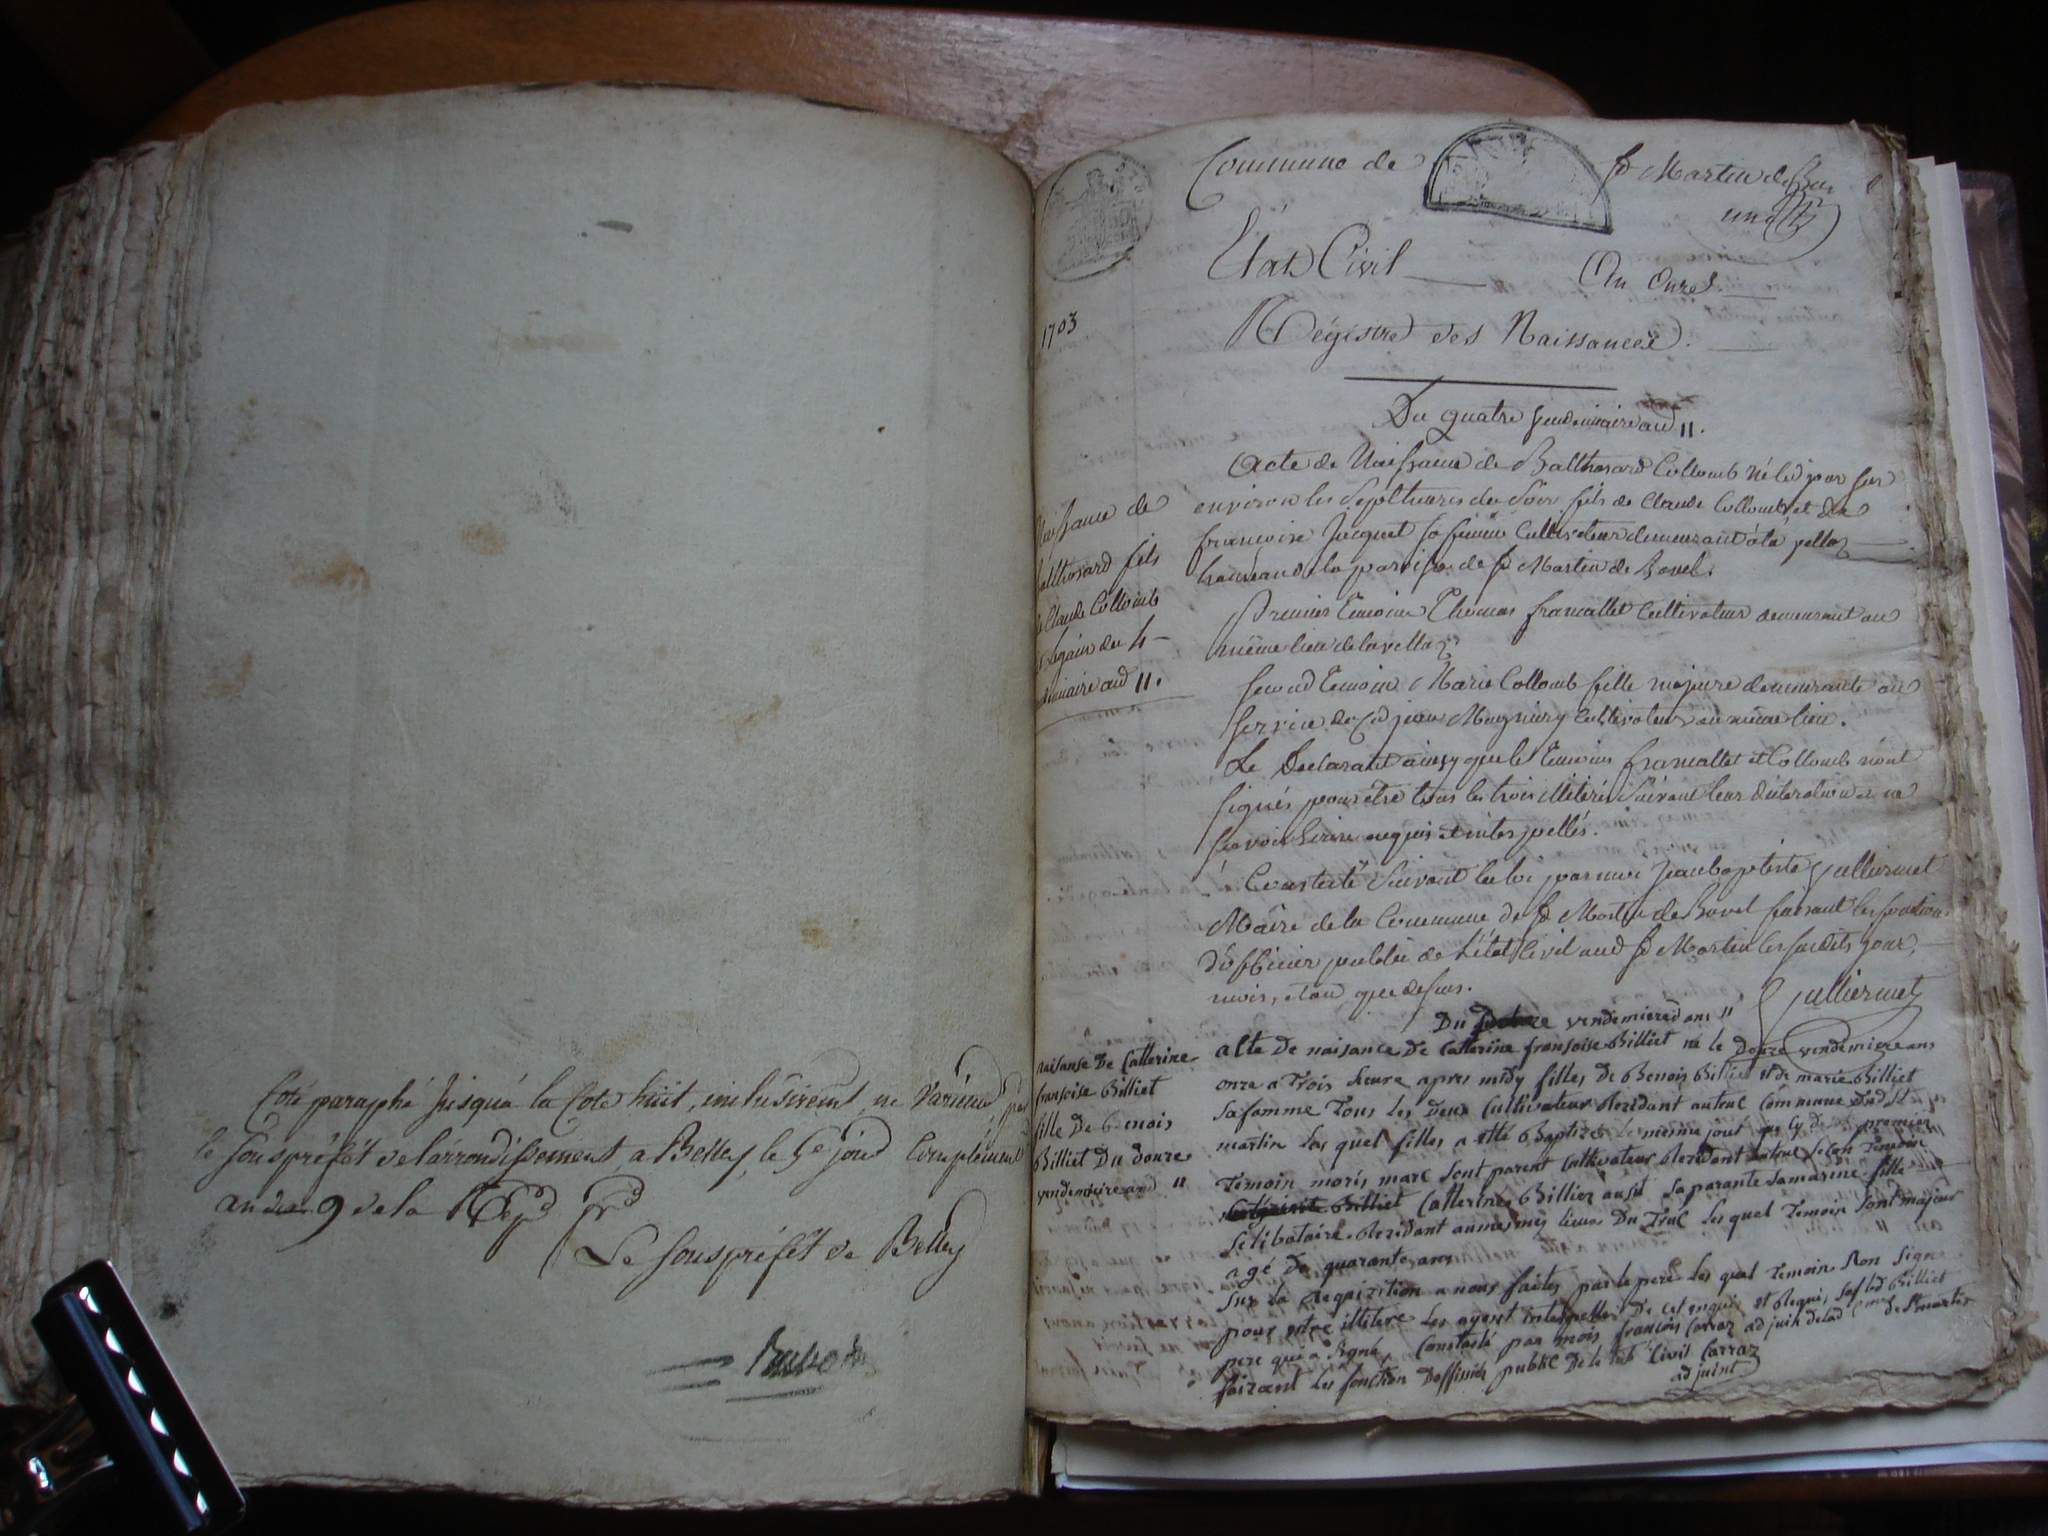 Coté paraphé jusqu'à la Cote huit, inclusivemt, ne Varietur par
le souspréfét de l'arrondissement, a Belley, le 5e jour Complément
an 9 de la Rep
Le souspréfét de Belley
Commune de St Martin de
un
Etat Civil An Onze
1703
Régistre des Naissances.
Du quatre vendemiaire an 11.
Naissance de
balthasard fils
de Claude Collomb
du 4
vendemiaire an 11.
Acte de Naissance de Balthasard Collomb né led jour sur
environ les Sept heures du Soir fils de Claude Collomb et de
françoise Jacquet sa femme Cultivateur demeurant à la vella
hameau de la paroisse de St Martin de Bavel.
Premier temoin Thomas francallet Cultivateur demeurant au
même lieu de la vella
second temoin Marie Collomb fille majeure demeurante au
service de Cd jean Mugniery Cultivateur au même lieu.
Le Declarant ainsy que les temoins francallet et Collomb n'ont
signés pour être tous les trois illiterés suivant leur déclaration
savoir Ecrire enquis et interpellés.
Constaté suivant la loi par moi Jean baptiste Julliermet
Maire de la Commune de St Martin de Bavel faisant les fonctions
d'officier public de l'état Civil aud St Martin les susdits jour,
mois, et an que dessus.
Julliermet
naisanse De Catterine
fransoise Billiet
fille De benois
Billiet Du douze
vendemiere and 11
Du vendemiere d ans 11
alte De naisance De Catterine fransoise Billiet né le Douze vendemiere ans
onze a Trois heure apres midy filles De Benois Billiet et de marie Billiet
sa famme Tous les Deux Cultivateur Residant autruc Commune Dud St
martin Les quel filles a étté Baptisé Le mesme jour premier
Temoin moris marc sont parent Cultivateur Residant autruc selon Temoin
Billiet Catterine Billiez ausit sa parante Samarine fille
selibataire Residant aumesmes lieux Du Truc les quel Temoin sont majeur
agé De quarante ans
sur La Requizition a nous faites par le pere Les quel Temoin Non signe
pour estre illitere Les ayent interpelles De cet enquis et Requi, sof led Billiet
pere qui a signé, Constasté par mois francois Carraz adjuin delad Cme de St martin
faizant Les fonction Doffissier public De le tat Civil Carraz
adjuint